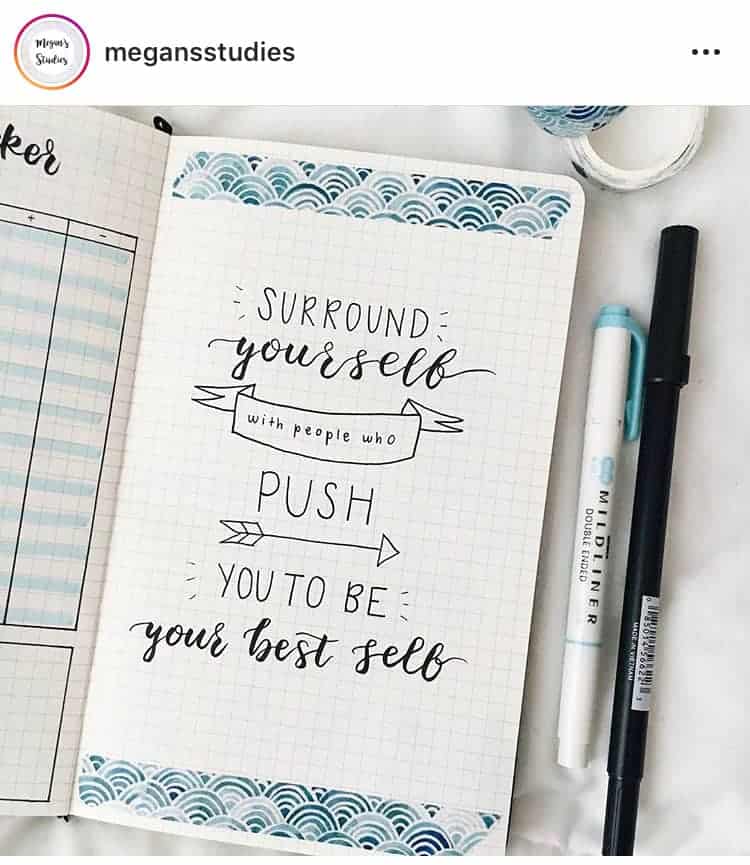 Megan's
Studies
megansstudies
ker
+ -
SURROUND
yourself
with people who
PUSH
YOU TO BE
your best self
MILDLINER
DOUBLE ENDED
MADE IN VIETNAM